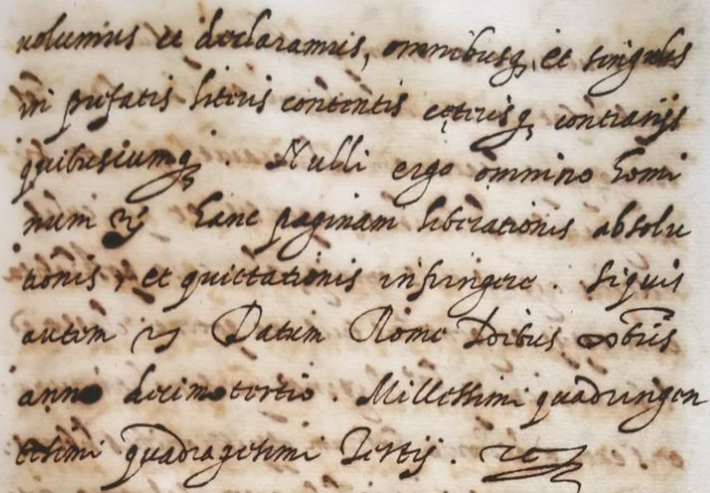 uolumus et declaramus, omnibusq, et singulis
in prefatis literis contentis cęterisq, contrarijs
quibuscumq. Nulli ergo omnino homi
num &c hanc paginam liberationis absolu
tionis, et quietationis infringere. Siquis
autem &c Datum Rome Idibus
anno decimotertio. Millesimi quadringen
tesimi quadragesimi Tertij. &c